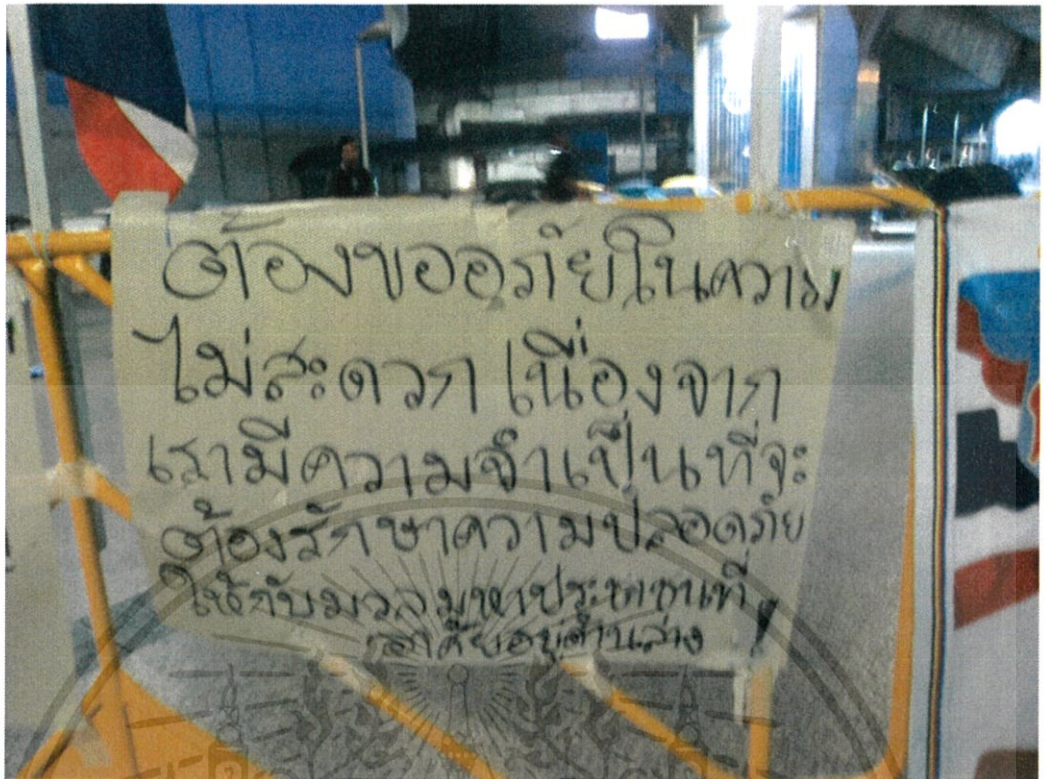 ต้องขออภัยในความ
ไม่สะดวก เนื่องจาก
เรามีความจำเป็นที่จะ
ต้องรักษาความปลอดภัย
ให้กับมวลมหาประชาชนที่
อาศัยอยู่ด้านล่าง !